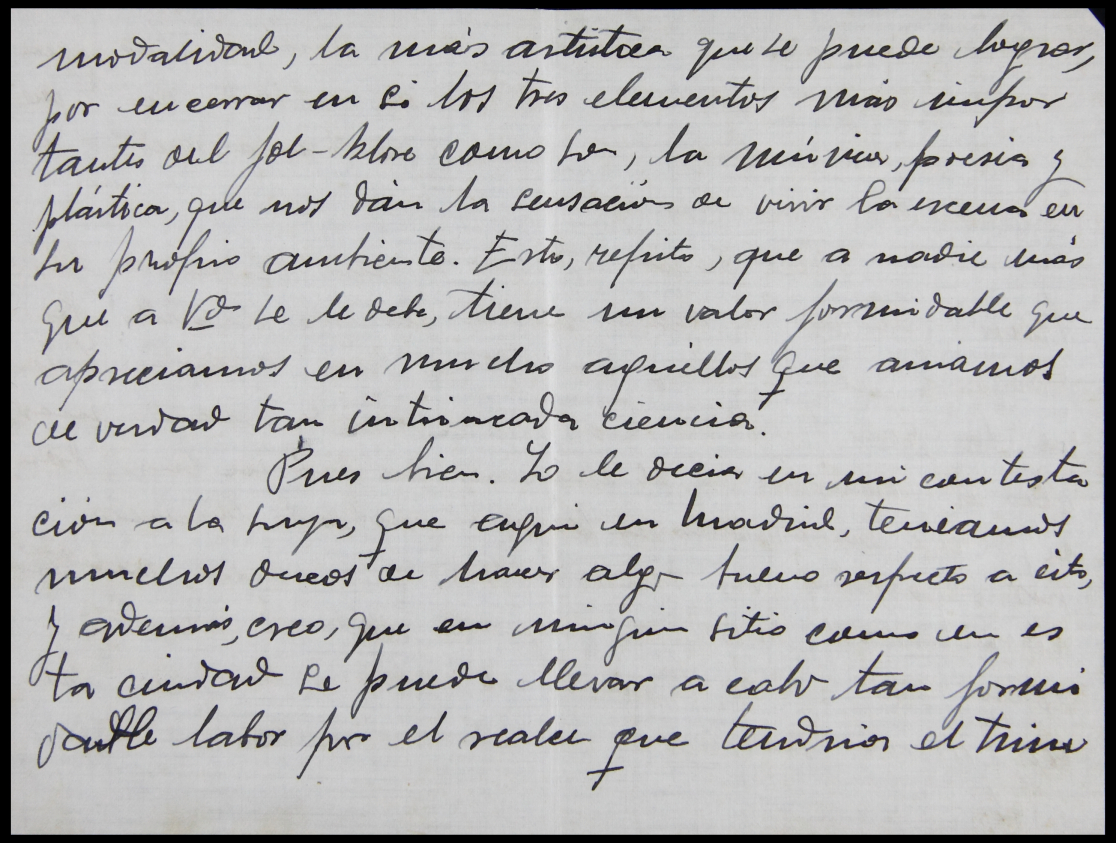 modalidad, la más artística que se puede lograr,
por encerrar en sí los tres elementos más impor
tantes del fol-klore como son, la música, poesia y
plástica, que nos dán la sensación de vivir la escena en
su propio ambiente. Esto, repito, que a nadie más
que a Vds se le debe, tiene un valor formidable que
apreciamos en mucho aquellos que amamos
de verdad tan intrincada ciencia.
Pues bien. Yo le decia en mi contesta
ción a la suya, que aqui en Madrid, teniamos
muchos deseos de hacer algo bueno respecto a esto,
y además, creo, que en ningun sitio como en es
ta ciudad se puede llevar a cabo tan formi
dable labor por el realce que tendria el